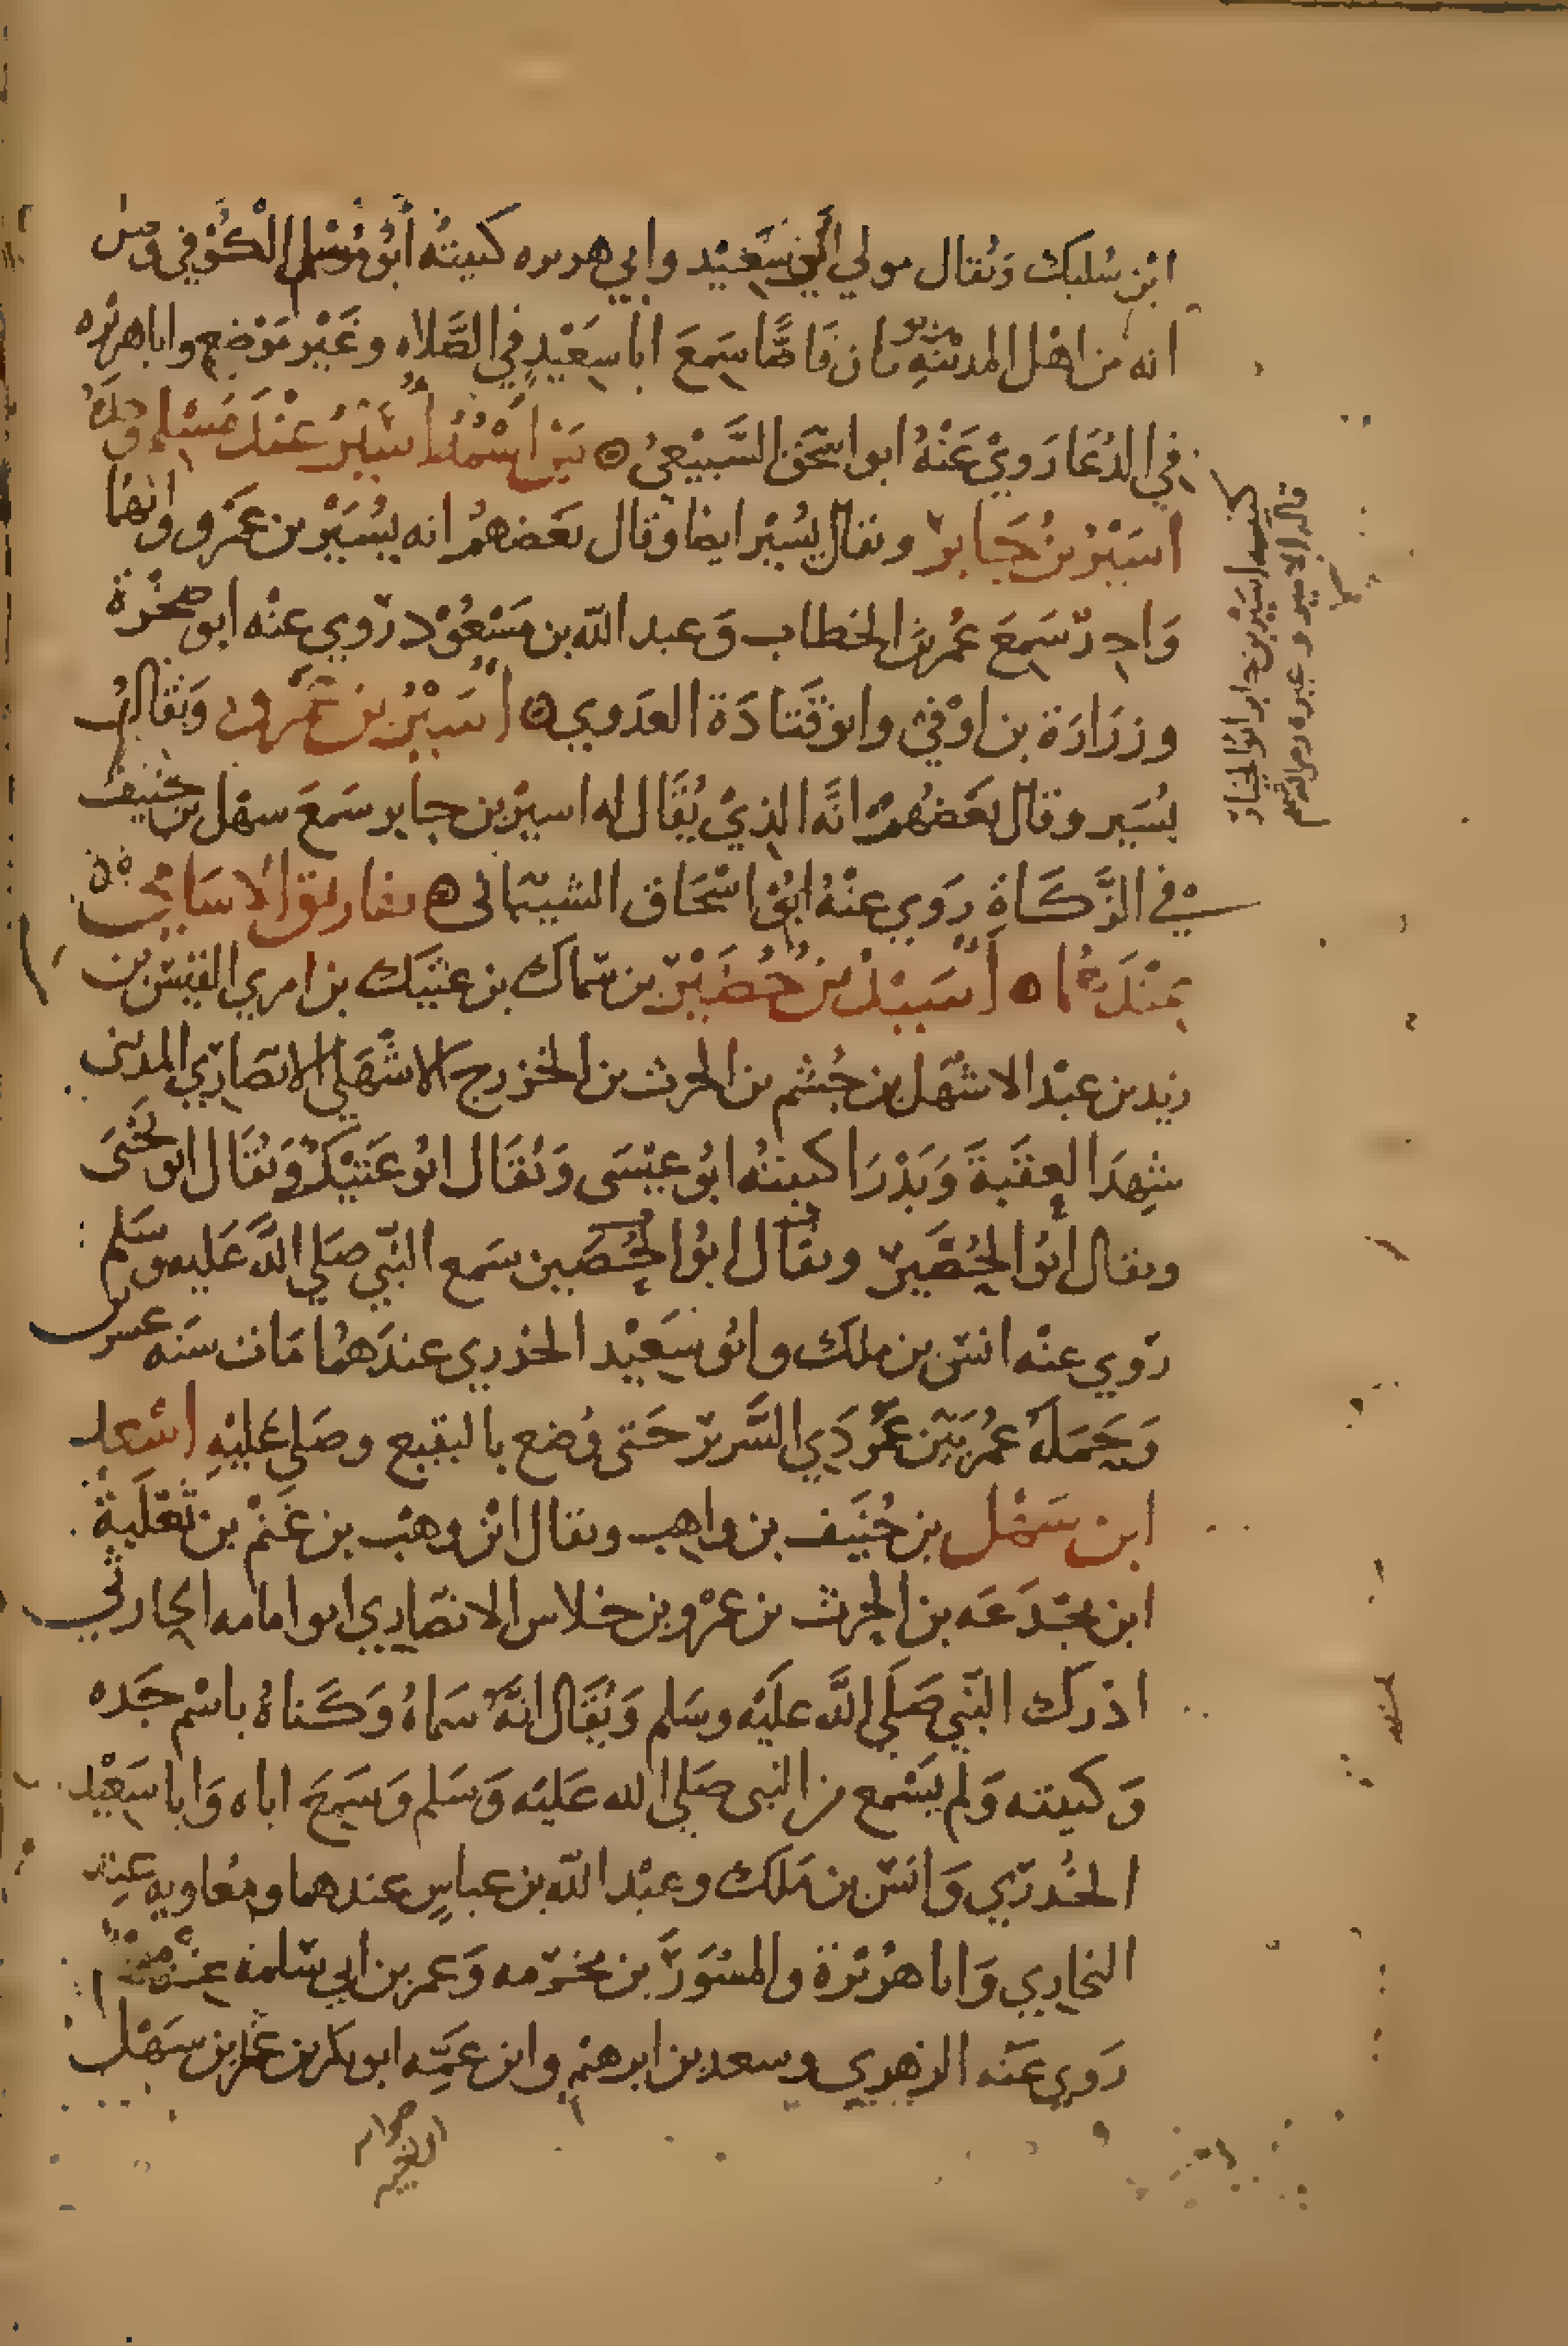 ابن سليك ويقال مولي ابي سعيد وابي هريره كنيته ابو مسلم الكوفي وليس
انه من اهل المدينة كان قاصا سمع ابا سعيد في الصلاه وغير موضع وابا هريره
في الدعا روي عنه ابو اسحق السبيعي من اسمه اسير عند مسلم وحده
اسير بن جابر ويقال يسير ايضا وقال بعضهم انه يسير بن عمرو وانهما
واحد سمع عمر بن الخطاب وعبد الله بن مسعود روي عنه ابو
وزرارة بن اوفي وابو قتادة العدوي اسير بن عمرو ويقال
يسير وقال بعضهم انه الذي يقال له اسير بن جابر سمع سهل بن حنيف
في الزكاة روي عنه ابو اسحاق الشيباني تفاريق الاسامي
عندهما اسيد بن حضير بن سماك بن عتيك بن امري القيس بن
زيد بن عبد الاشهل بن جشم بن الحرث بن الخزرج الاشهلي الانصاري المديني
شهد العقبة وبدرا كنيته ابو عيسى ويقال ابو عتيك ويقال ابو يحيى
ويقال ابو الحضير ويقال ابو الحصين سمع النبي صلي الله عليه وسلم
روي عنه انس بن ملك وابو سعيد الخدري عندهما مات سنه عشرين
وحمله عمر بين عمودي السرير حتى وضع بالبقيع وصلي عليه اسعد
ابن سهل بن حنيف بن واهب ويقال ابن وهب بن غنم بن ثعلبة
ابن مجدعه بن الحرث بن عمرو بن خلاس الانصاري ابو امامه الحارثي
ادرك النبي صلي الله عليه وسلم ويقال انه سماه وكناه باسم جده
وكنيته ولم يسمع من النبي صلي الله عليه وسلم وسمع اباه وابا سعيد
الخدري وانس بن ملك وعبد الله بن عباس عندهما ومعاويه عند
البخاري وابا هريرة والمسور بن مخرمه وعمر بن ابي سلمة عند
روي عنه الزهري وسعد بن ابرهيم وابن عمه ابو بكر بن عثمن بن سهل
كنيه اسير بن جابر ابو الخيار
قاله الامير وغيره